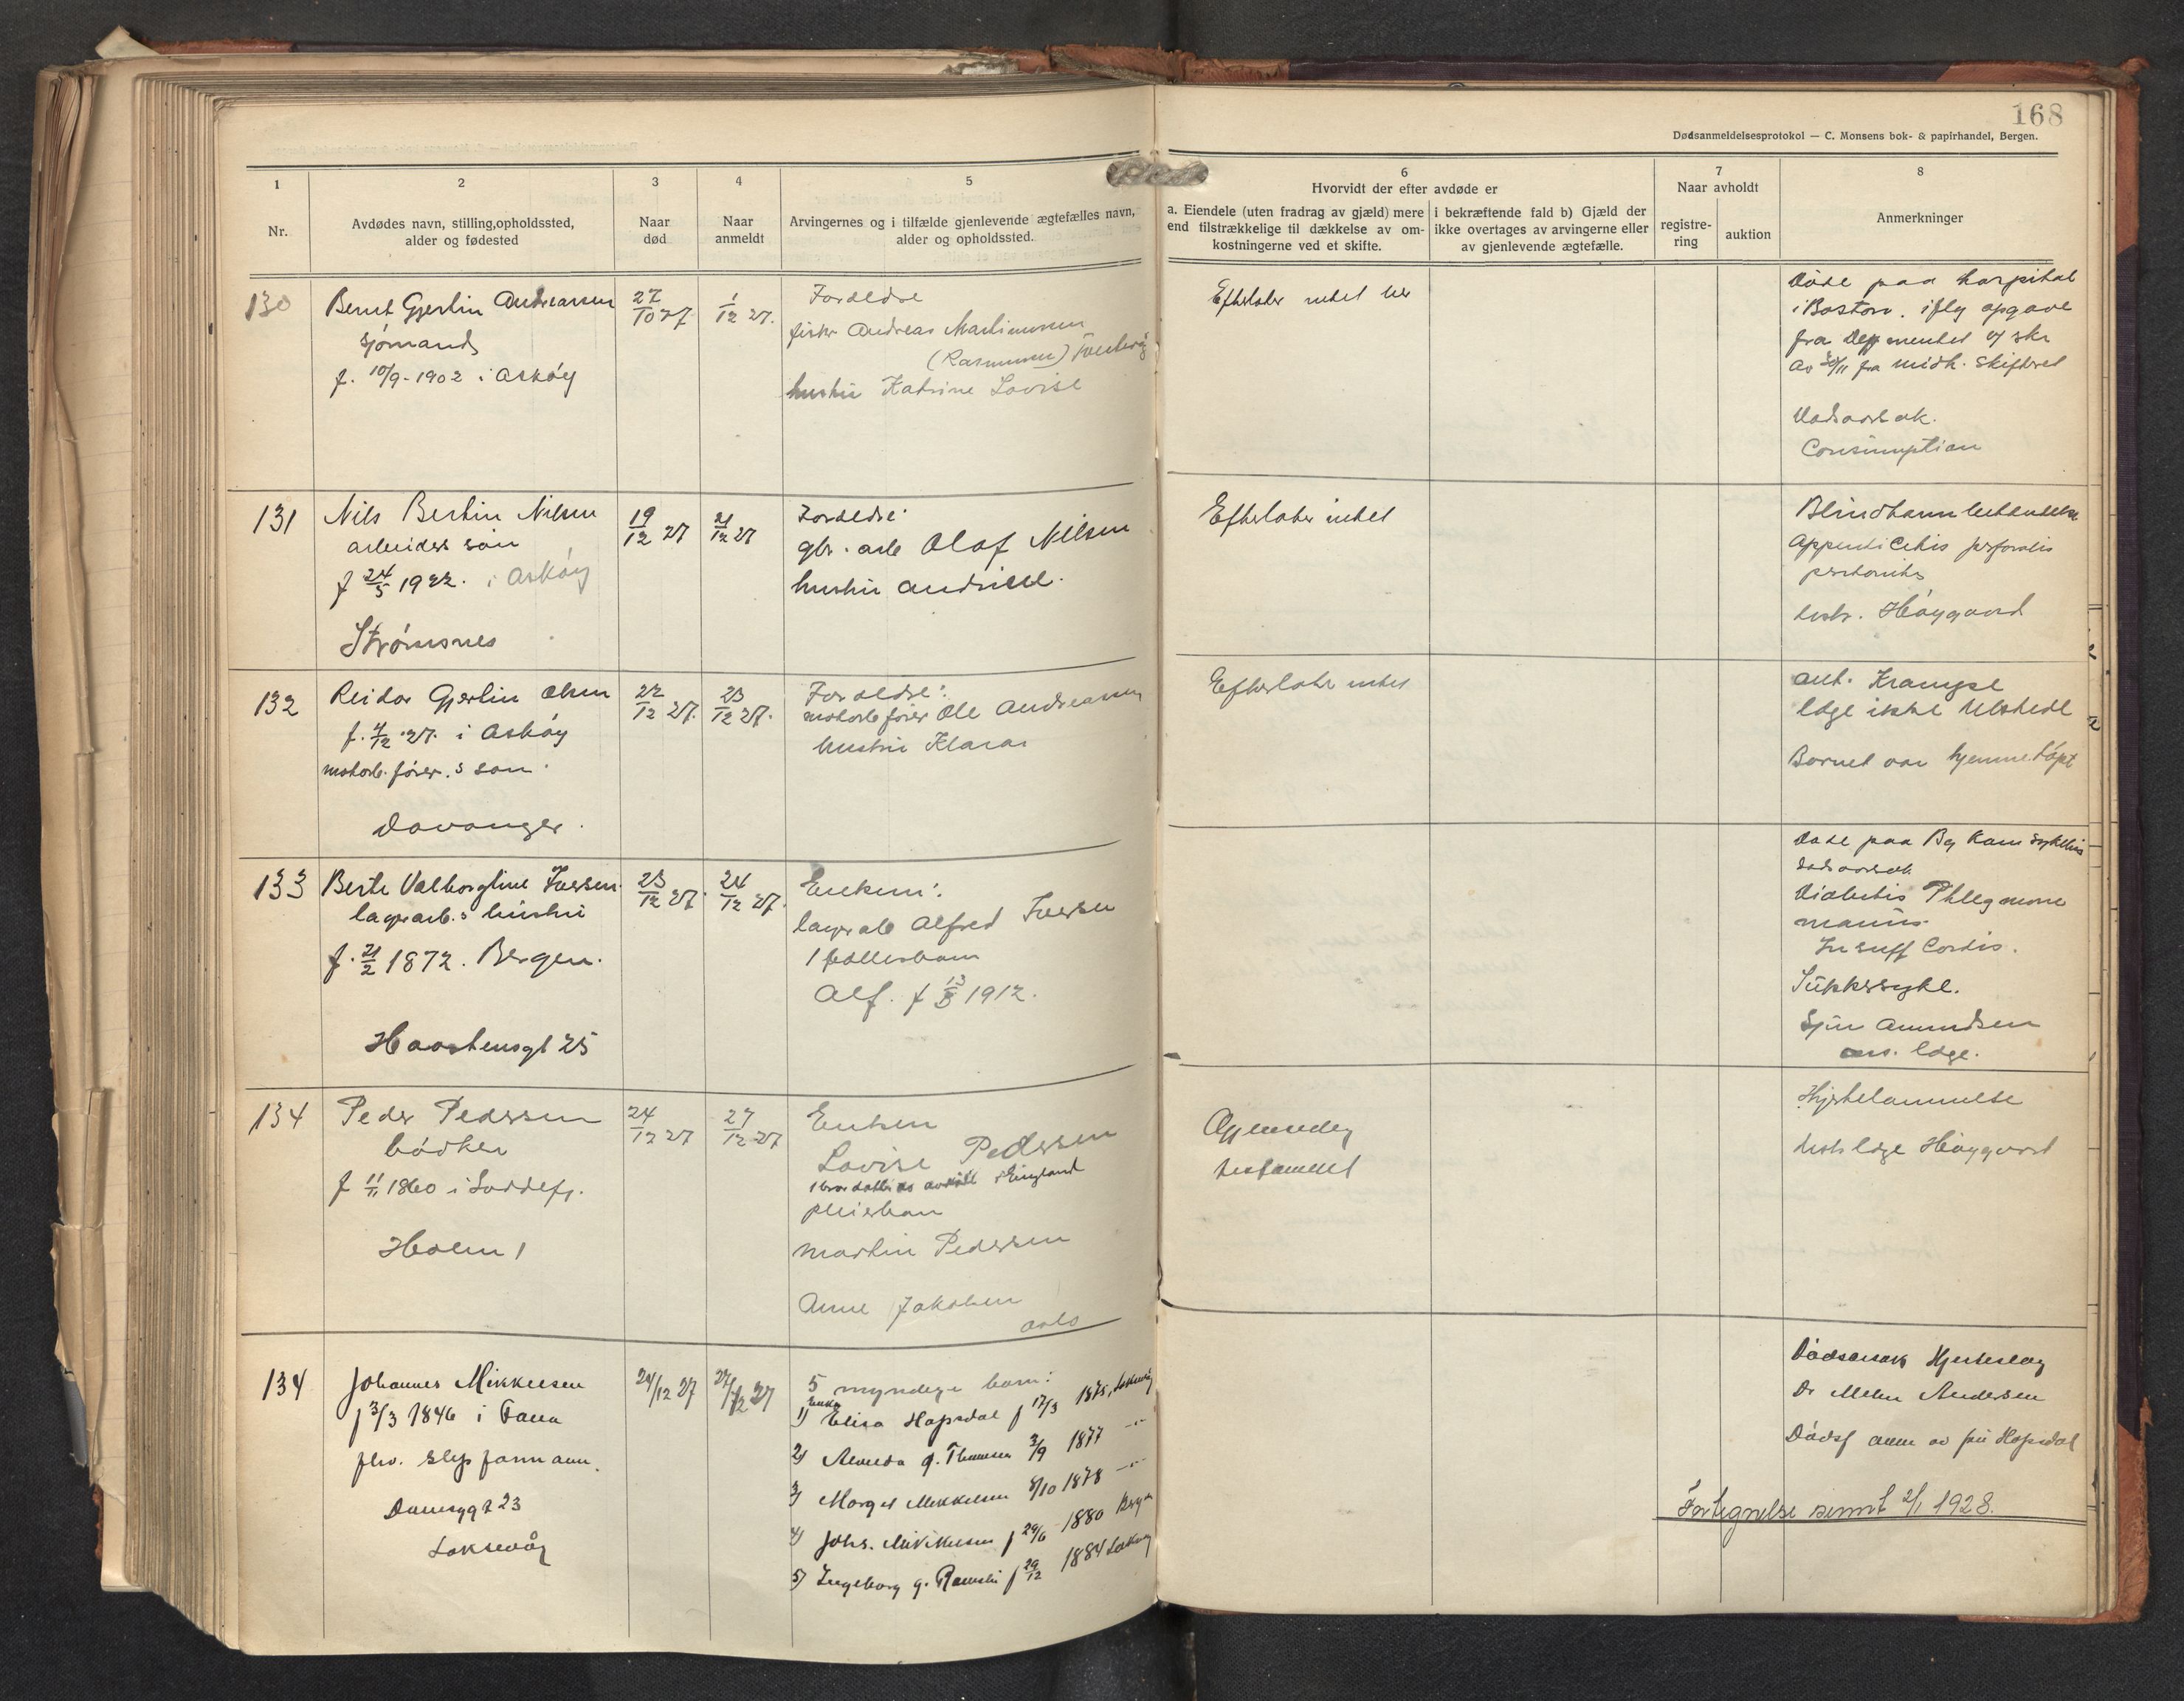 168
Dødsanmeldelsesprotokol — C. Monsens bok- & papirhandel, Bergen.
1
Nr.
2
Avdødes navn, stilling, opholdssted,
alder og fødested
3
Naar
død
4
Naar
anmeldt
5
Arvingernes og i tilfælde gjenlevende ægtefælles navn,
alder og opholdssted.
6
Hvorvidt der efter avdøde er
a. Eiendele (uten fradrag av gjæld) mere
end tilstrækkelige til dækkelse av om-
kostningerne ved et skifte.
i bekræftende fald b) Gjæld der
ikke overtages av arvingerne eller
av gjenlevende ægtefælle.
7
Naar avholdt
registre-
ring
auktion
8
Anmerkninger
130
Bernt Gjertin Andreassen
sjømand
f. 10/9-1902 i Askøy
27/10 27
1/12 27.
Foraldre
fisker Andreas Martinussen
(Rasmussen)
hustru Katrine Lovise
Efterlater intet her
Døde paa hospital
i Boston. iflg opgave
fra
av 30/11 fra midh. skifteret
Dødsaarsak.
Consumption
131
Nils Bertin Nilsen
arbeiders søn
f 24/5 1922. i Askøy
Strømsnes
19/12 27
21/12 27
Foraldre:
gbr. arb Olaf Nilsen
hustru
Efterlater intet
Blindtarm
Appendicitis
distr. Høygaard
132
Reidar Gjertin Olsen
f. 7/12 27. i Askøy
motorb. fører.s søn.
Davanger.
22/12 27.
23/12 27.
Foraldre:
motorb fører Ole Andreassen
hustru Klara
Efterlater intet
ant. Krampe
læge ikke tilstede
Barnet var hjemmedøpt
133
Berte Valborgline Iversen
lagerarb.s hustru
f. 21/2 1872. Bergen.
23/12 27.
24/12 27.
Enkem:
lagerarb Alfred Iversen
1 fællesbarn
Alf. f 1912.
Døde paa Bg Kom sykehus
dødsaarsak
Diabetis Phlegmone
manus.
Insuff Cordis.
Sukkersyke.
Amundsen
ass. læge.
134
Peder Pedersen
bødker
f 11/11 1860 i
Holen 1
24/12 27
27/12 27
Enken
Lovise Pedersen
i England
pleiebarn
Martin Pedersen
Anne Jakobsen
Oslo
Gjensidig
testament
Hjertelammelse
læge Høygaard
134
Johannes Mikkelsen
f 3/3 1846 i Fana
fhv. slipformann.
Damsgt 23
Laksevåg
24/12 27
27/12 27
5 myndige barn:
Enke
1) Elisa Hopsdal f 17/3 1875, Laksevåg
2) g. Thomsen 3/9 1877 —"—
3) Margit Mikkelsen 8/10 1878 —"—
4) Johs. Mikkelsen f 29/6 1880 Bergen
5) Ingeborg g. f 29/12 1884 Laksevåg
Dødsårsak Hjerteslag
Dr Andersen
Dødsf anm av fru Hopsdal
Fortegnelse sendt 2/1 1928.